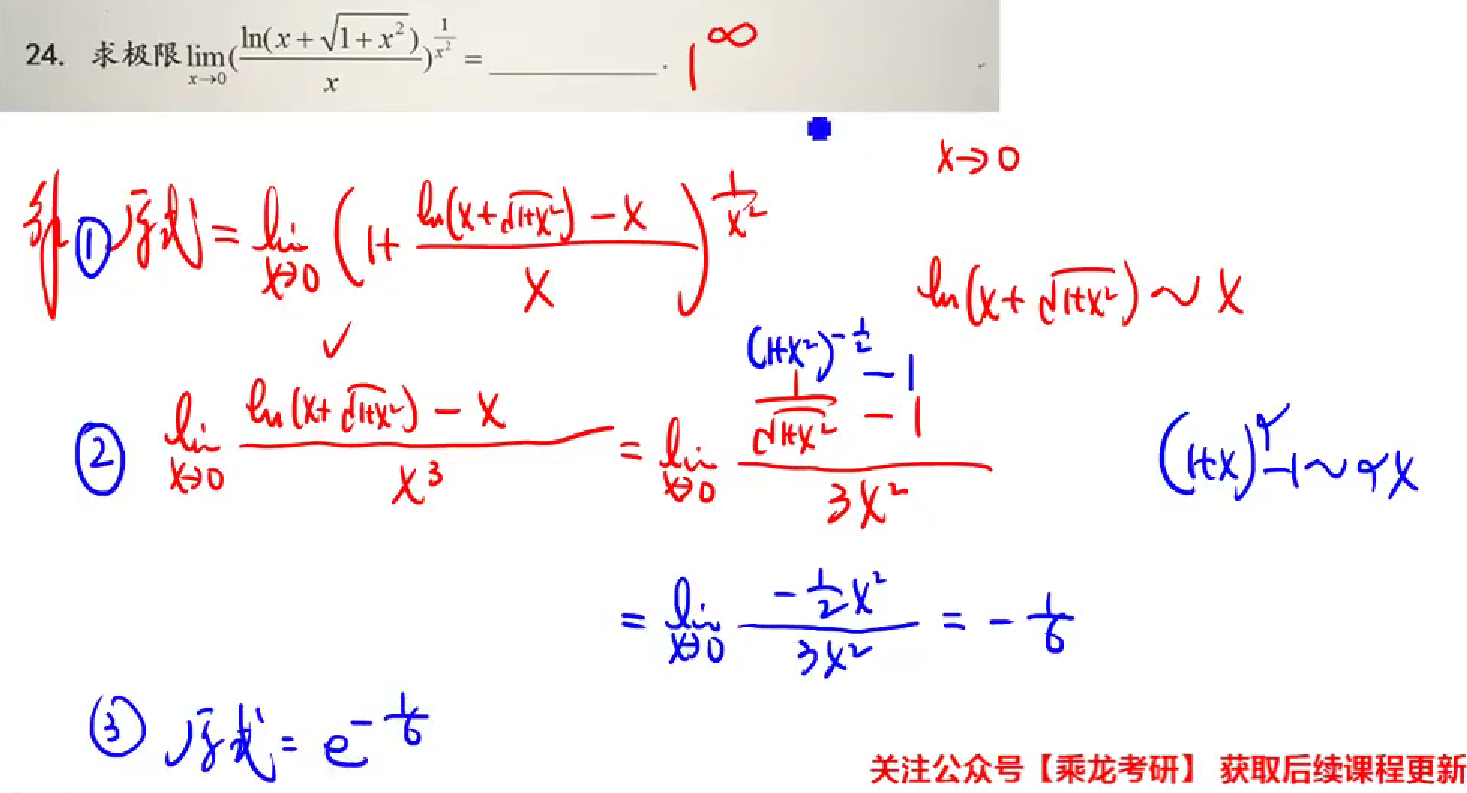 24. 求极限 lim_{x→0} (ln(x+√(1+x²))/x)^{1/x²} = ________. 1^∞
x→0
解 ① 原式 = lim_{x→0} (1 + (ln(x+√(1+x²)) - x)/x)^{1/x²}
ln(x+√(1+x²)) ~ x
✓
(1+x²)^{-1/2} - 1
② lim_{x→0} (ln(x+√(1+x²)) - x)/x³ = lim_{x→0} (1/√(1+x²) - 1)/(3x²)
(1+x)^α - 1 ~ αx
= lim_{x→0} (-1/2 x²)/(3x²) = -1/6
③ 原式 = e^{-1/6}
关注公众号【乘龙考研】 获取后续课程更新